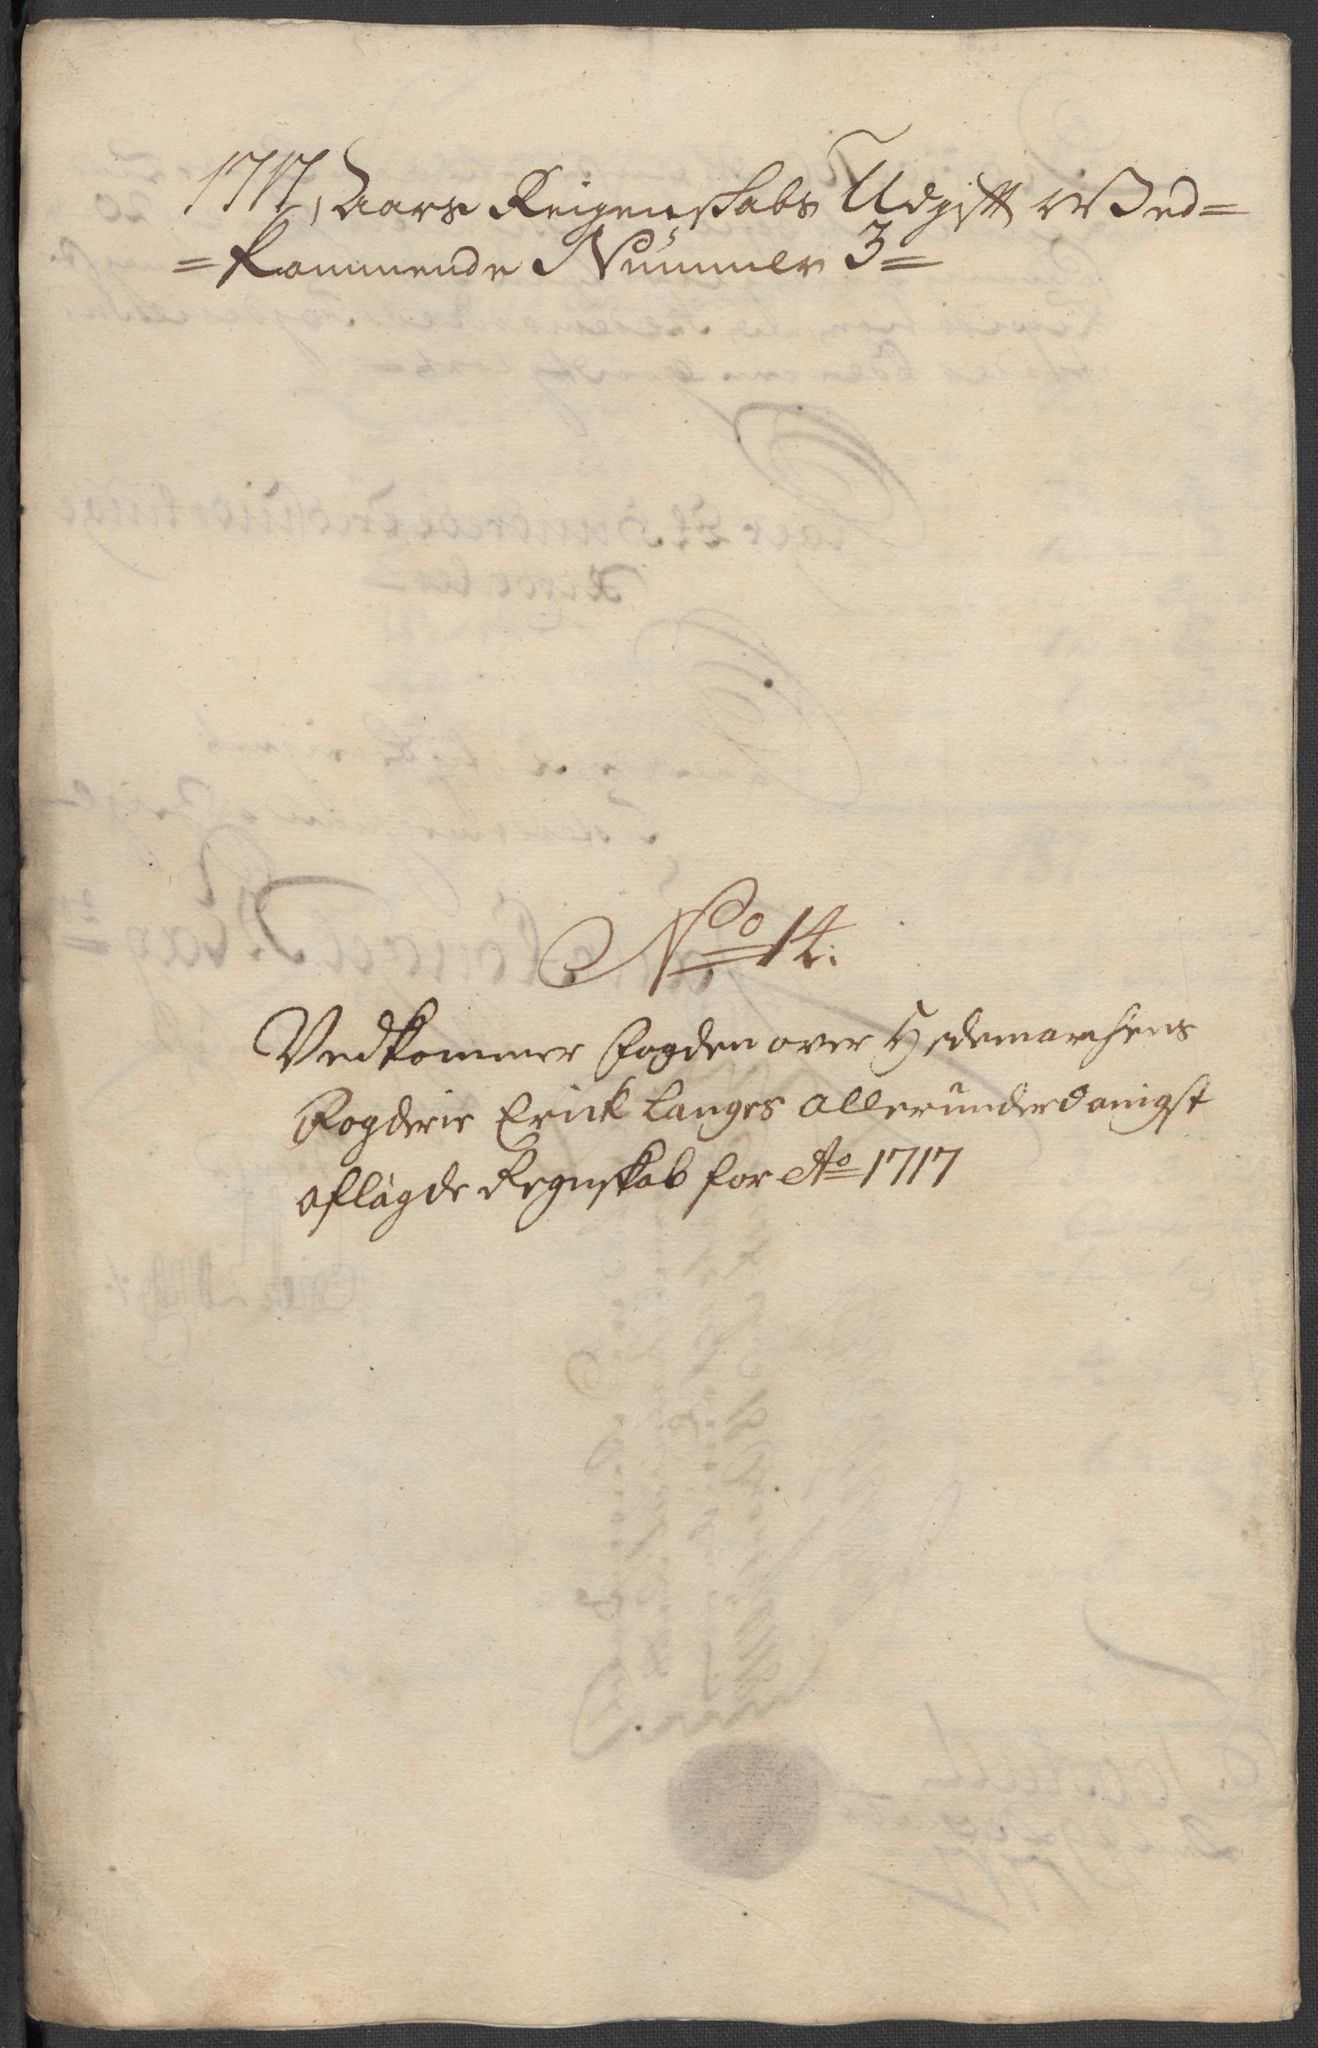 1717, Aars Reigenskabs Udgift Wed=
=kommende Nummer 3=
No 14.
Vedkommer fogden over Hedemarchens
Fogderie Erick Langes allerunderdanigst
aflagde Regnskab for Ao 1717